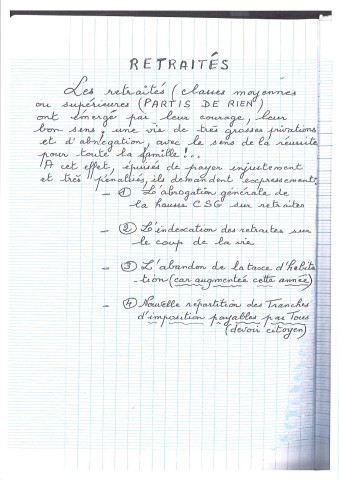 RETRAITÉS
Les retraités (classes moyennes
ou supérieures (PARTIS DE RIEN)
ont émergé par leur courage, leur
bon sens, une vie de très grosses privations
et d'abnégation, avec le sens de la réussite
pour toute la famille !...
A cet effet, épuisés de payer injustement
et très pénalisés, ils demandent expressément :
- ① L'abrogation générale de
la hausse CSG sur retraites
- ② L'indexation des retraites sur
le coup de la vie
- ③ L'abandon de la taxe d'habita
-tion (car augmentée cette année)
- ④ Nouvelle répartition des Tranches
d'imposition payables par Tous
(devoir citoyen)